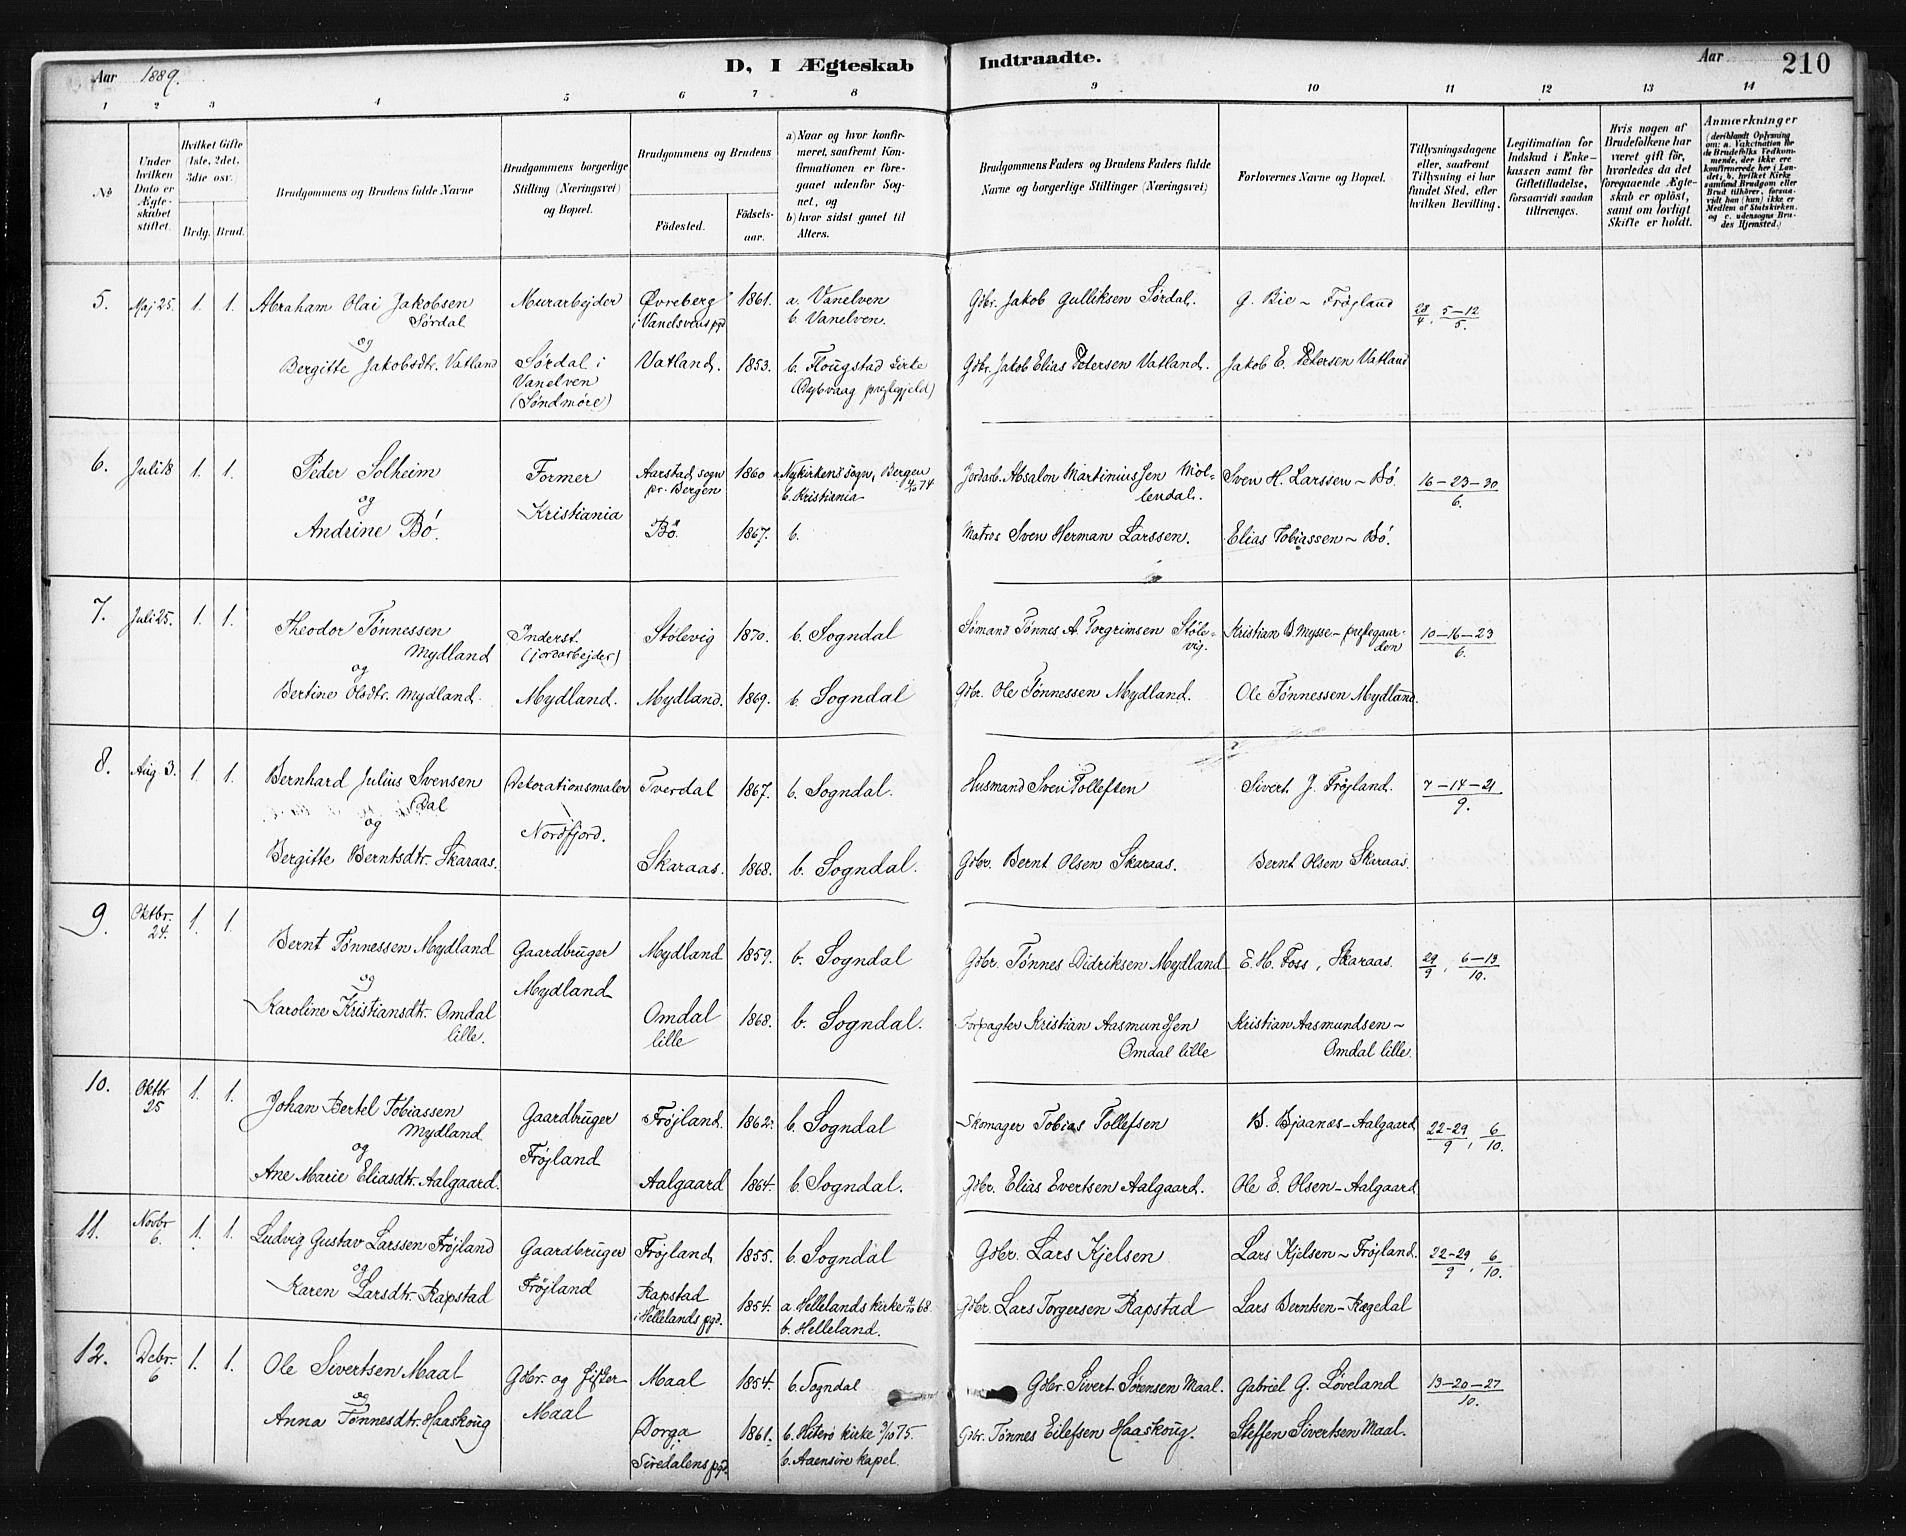 Aar 1889.
D, I Ægteskab Indtraadte.
Aar 210
1 2 3 4 5 6 7 8 9 10 11 12 13 14
No
Under hvilken Dato er Ægteskabet stiftet.
Hvilket Gifte (1ste, 2det, 3die osv.
Brdg. Brud.
Brudgommens og Brudens fulde Navne
Brudgommens borgerlige Stilling (Næringsvei) og Bopæl.
Brudgommens og Brudens
Fødested.
Fødsels-aar.
a) Naar og hvor konfirmeret, saafremt Konfirmationen er foregaaet udenfor Sognet, og
b) hvor sidst gaaet til Alters.
Brudgommens Faders og Brudens Faders fulde Navne og borgerlige Stillinger (Næringsvei)
Forlovernes Navne og Bopæl.
Tillysningsdagene eller, saafremt Tillysning ei har fundet Sted, efter hvilken Bevilling.
Legitimation for Indskud i Enkekassen samt for Giftetilladelse, forsaavidt saadan tiltrænges.
Hvis nogen af Brudefolkene har været gift før, hvorledes da det foregaaende Ægteskab er opløst, samt om lovligt Skifte er holdt.
Anmærkninger (deriblandt Oplysning om: a. Vaccination for de Brudefolks Vedkommende, der ikke ere konfirmerede her i Landet; b. hvilket Kirkesamfund Brudgom eller Brud tilhører, forsaavidt han (hun) ikke er Medlem af Statskirken, og c. udensogns Brudes Hjemsted.)
5. Maj 25. 1. 1. Abraham Olai Jakobsen Murarbejder Øvreberg 1861. a. Vanelven Gbr. Jakob Gulliksen Sørdal. G. Bie ~ Frøjland 28/4, 5-12/5.
Sørdal i Vanelvens pgd b. Vanelven.
og
Bergitte Jakobsdtr. Vatland Sørdal i Vatland. 1853. b. Flougstad Kirke Gbr. Jakob Elias Petersen Vatland. Jakob E. Petersen Vatland
Vanelven (Dybvaag prestegjeld)
(Søndmøre)
6. Juli 18 1. 1. Peder Solheim Former Aarstad sogn 1860 a. Nykirkens sogn, Bergen Jordarb. Absalon Martiniussen Møl- Sven H. Larssen ~ Bø. 16-23-30/6.
pr. Bergen b. Kristiania 4/10 74 lendal.
og Kristiania
Andrine Bø. Bø. 1867. b. Matros Sven Herman Larssen. Elias Tobiassen ~ Bø.
7. Juli 25. 1. 1. Theodor Tønnessen Inderst. Stølevig 1870. b. Sogndal Sømand Tønnes A. Torgrimsen Støle- Kristian B. Mysse - prestegaar- 10-16-23/6.
Mydland (jordarbejder) vig. den
og
Bertine Olsdtr. Mydland. Mydland. Mydland. 1869. b. Sogndal Gbr. Ole Tønnessen Mydland. Ole Tønnessen Mydland.
8. Aug. 3. 1. 1. Bernhard Julius Svensen Dekorationsmaler Tverdal 1867. b. Sogndal. Husmand Sven Tollefsen Sivert J. Frøjland. 7-14-21/9.
Dal i
og Nordfjord.
Bergitte Berntsdtr. Skaraas. Skaraas. 1868. b. Sogndal. Gbr. Bernt Olsen Skaraas. Bernt Olsen Skaraas.
9. Oktbr. 24. 1. 1. Bernt Tønnessen Mydland Gaardbruger Mydland 1859. b. Sogndal Gbr. Tønnes Didriksen Mydland E. H. Foss, Skaraas. 29/9, 6-13/10.
og Mydland
Karoline Kristiansdtr. Omdal Omdal 1868. b. Sogndal. Forpagter Kristian Aasmundsen Kristian Aasmundsen ~
lille. lille Omdal lille Omdal lille.
10. Oktbr 25 1. 1. Johan Bertel Tobiassen Gaardbruger Frøjland. 1862. b. Sogndal Skomager Tobias Tollefsen B. Bjaanes - Aalgaard 22-29/9, 6/10.
Mydland
og Frøjland
Ane Marie Eliasdtr. Aalgaard. Aalgaard 1864. b. Sogndal. Gbr. Elias Evertsen Aalgaard. Ole E. Olsen - Aalgaard
11. Novbr 6. 1. 1. Ludvig Gustav Larssen Frøjland Gaardbruger Frøjland 1855. b. Sogndal Gbr. Lars Kjelsen Lars Kjelsen ~ Frøjland. 22-29/9, 6/10.
og Frøjland
Karen Larsdtr. Rapstad Rapstad 1854. a. Hellelands kirke 4/10 68. Gbr. Lars Torgersen Rapstad Lars Berntsen - Rægedal
i Hellelands pgd. b. Helleland.
12. Debr. 6 1. 1. Ole Sivertsen Maal Gbr. og Fisker Maal 1854. b. Sogndal Gbr. Sivert Sørensen Maal. Gabriel G. Løveland 13-20-27/10.
og Maal
Anna Tønnesdtr. Haaskoug Dorga 1861. b. Hiterø kirke 3/10 75. Gbr. Tønnes Eilefsen Haaskoug. Steffen Sivertsen Maal.
Siredalens pgd. b. Aaensire kapel.